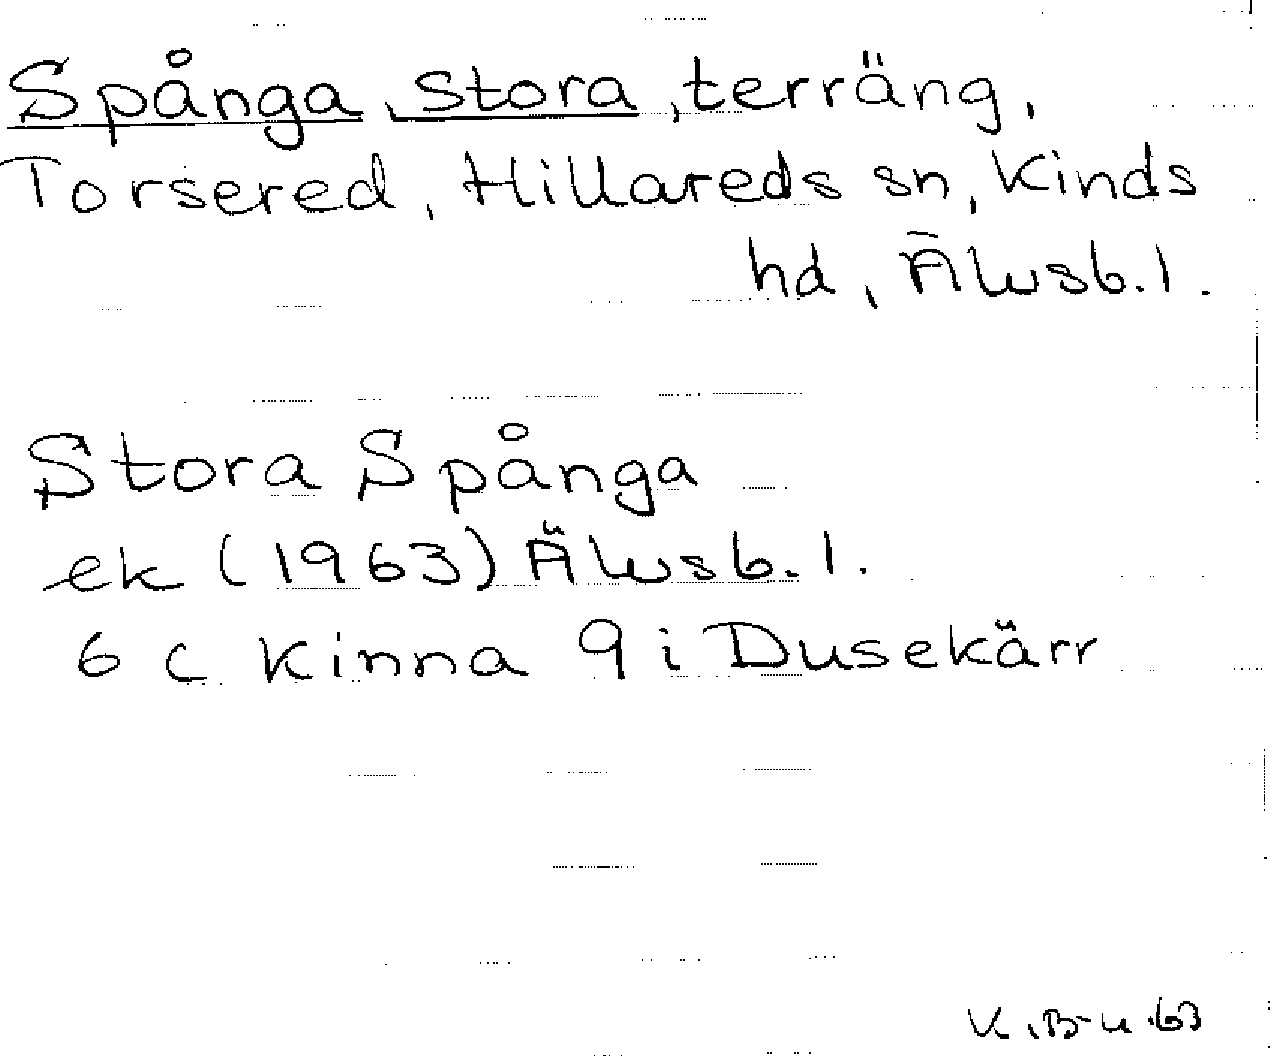 Spånga, stora, terräng,
Torsered, Hillareds sn, Kinds
hd, Älvsb. l.
Stora Spånga
ek (1963) Älvsb. l.
6 C Kinna 9 i Dusekärr
K.B-u.63